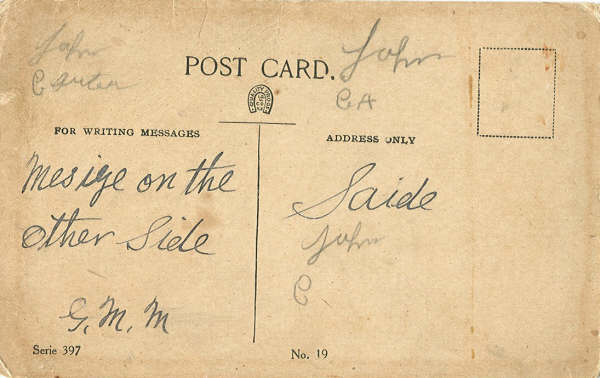 John
Carter
POST CARD.
John
CA
FOR WRITING MESSAGES
ADDRESS ONLY
Mesige on the
other Side
G. M. M
Saide
John
C
Serie 397
No. 19